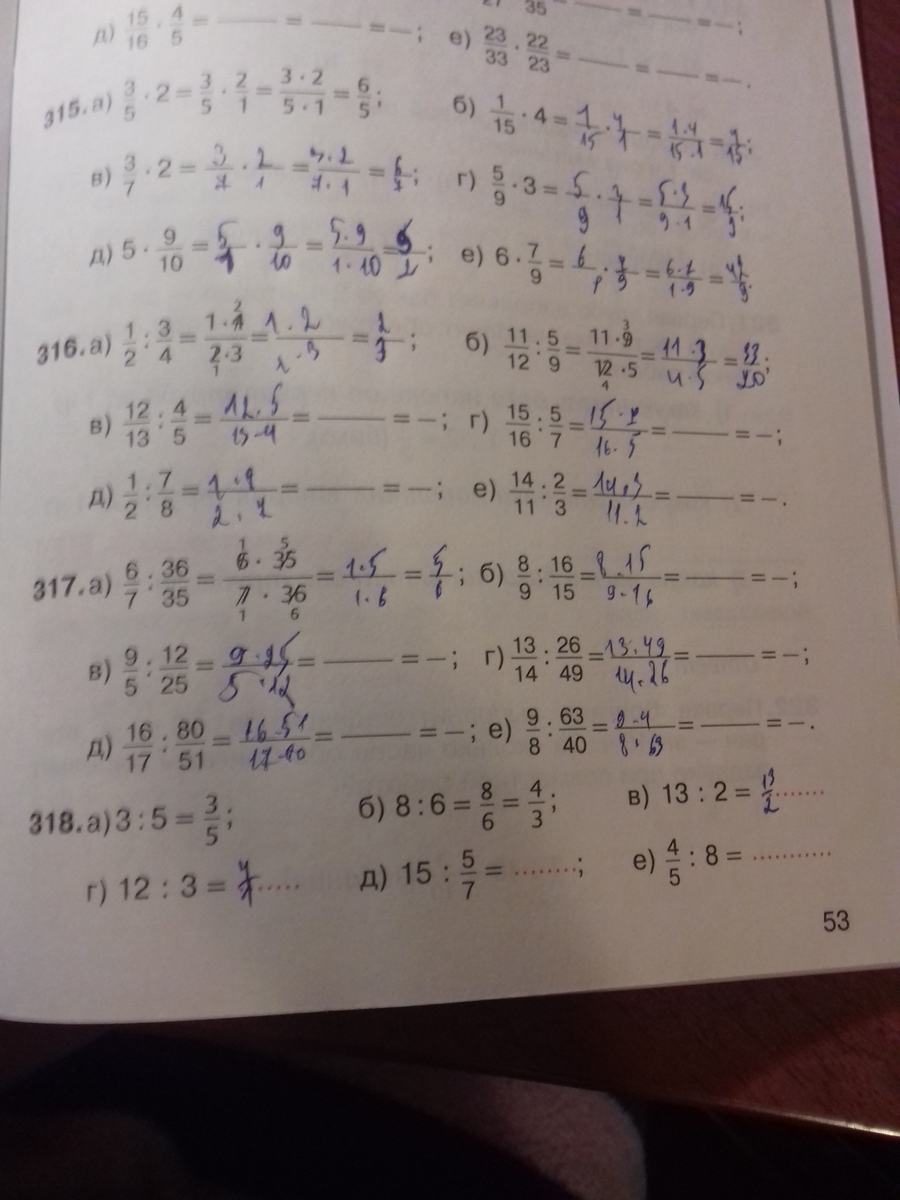 д) 15/16 · 4/5 = —— = —— = —; е) 23/33 · 22/23 = —— = —— = —.
315. а) 3/5 · 2 = 3/5 · 2/1 = 3 · 2/5 · 1 = 6/5; б) 1/15 · 4 = 1/15 · 4/1 = 1·4/15·1 = 4/15;
в) 3/7 · 2 = 3/7 · 2/1 = 3·2/7·1 = 6/7; г) 5/9 · 3 = 5/9 · 3/1 = 5·3/9·1 = 15/9;
д) 5 · 9/10 = 5/1 · 9/10 = 5·9/1·10 = 9/2; е) 6 · 7/9 = 6/1 · 7/9 = 6·7/1·9 = 42/9.
316. а) 1/2 : 3/4 = 1 · 4/2 · 3 = 1 · 2/1 · 3 = 2/3; б) 11/12 : 5/9 = 11 · 9/12 · 5 = 11 · 3/4 · 5 = 33/20;
в) 12/13 : 4/5 = 12·5/13·4 = —— = —; г) 15/16 : 5/7 = 15·7/16·5 = —— = —;
д) 1/2 : 7/8 = / 2·7 = —— = —; е) 14/11 : 2/3 = 14·3/11·2 = —— = —.
317. а) 6/7 : 36/35 = 6 · 35/7 · 36 = 1·5/1·6 = 5/6; б) 8/9 : 16/15 = 8·15/9·16 = —— = —;
в) 9/5 : 12/25 = 9·25/5·12 = —— = —; г) 13/14 : 26/49 = 13·49/14·26 = —— = —;
д) 16/17 : 80/51 = 16·51/17·80 = —— = —; е) 9/8 : 63/40 = 9·4/8·63 = —— = —.
318. а) 3 : 5 = 3/5; б) 8 : 6 = 8/6 = 4/3; в) 13 : 2 = 13/2 .......
г) 12 : 3 = ..... д) 15 : 5/7 = ........; е) 4/5 : 8 = ...........
53